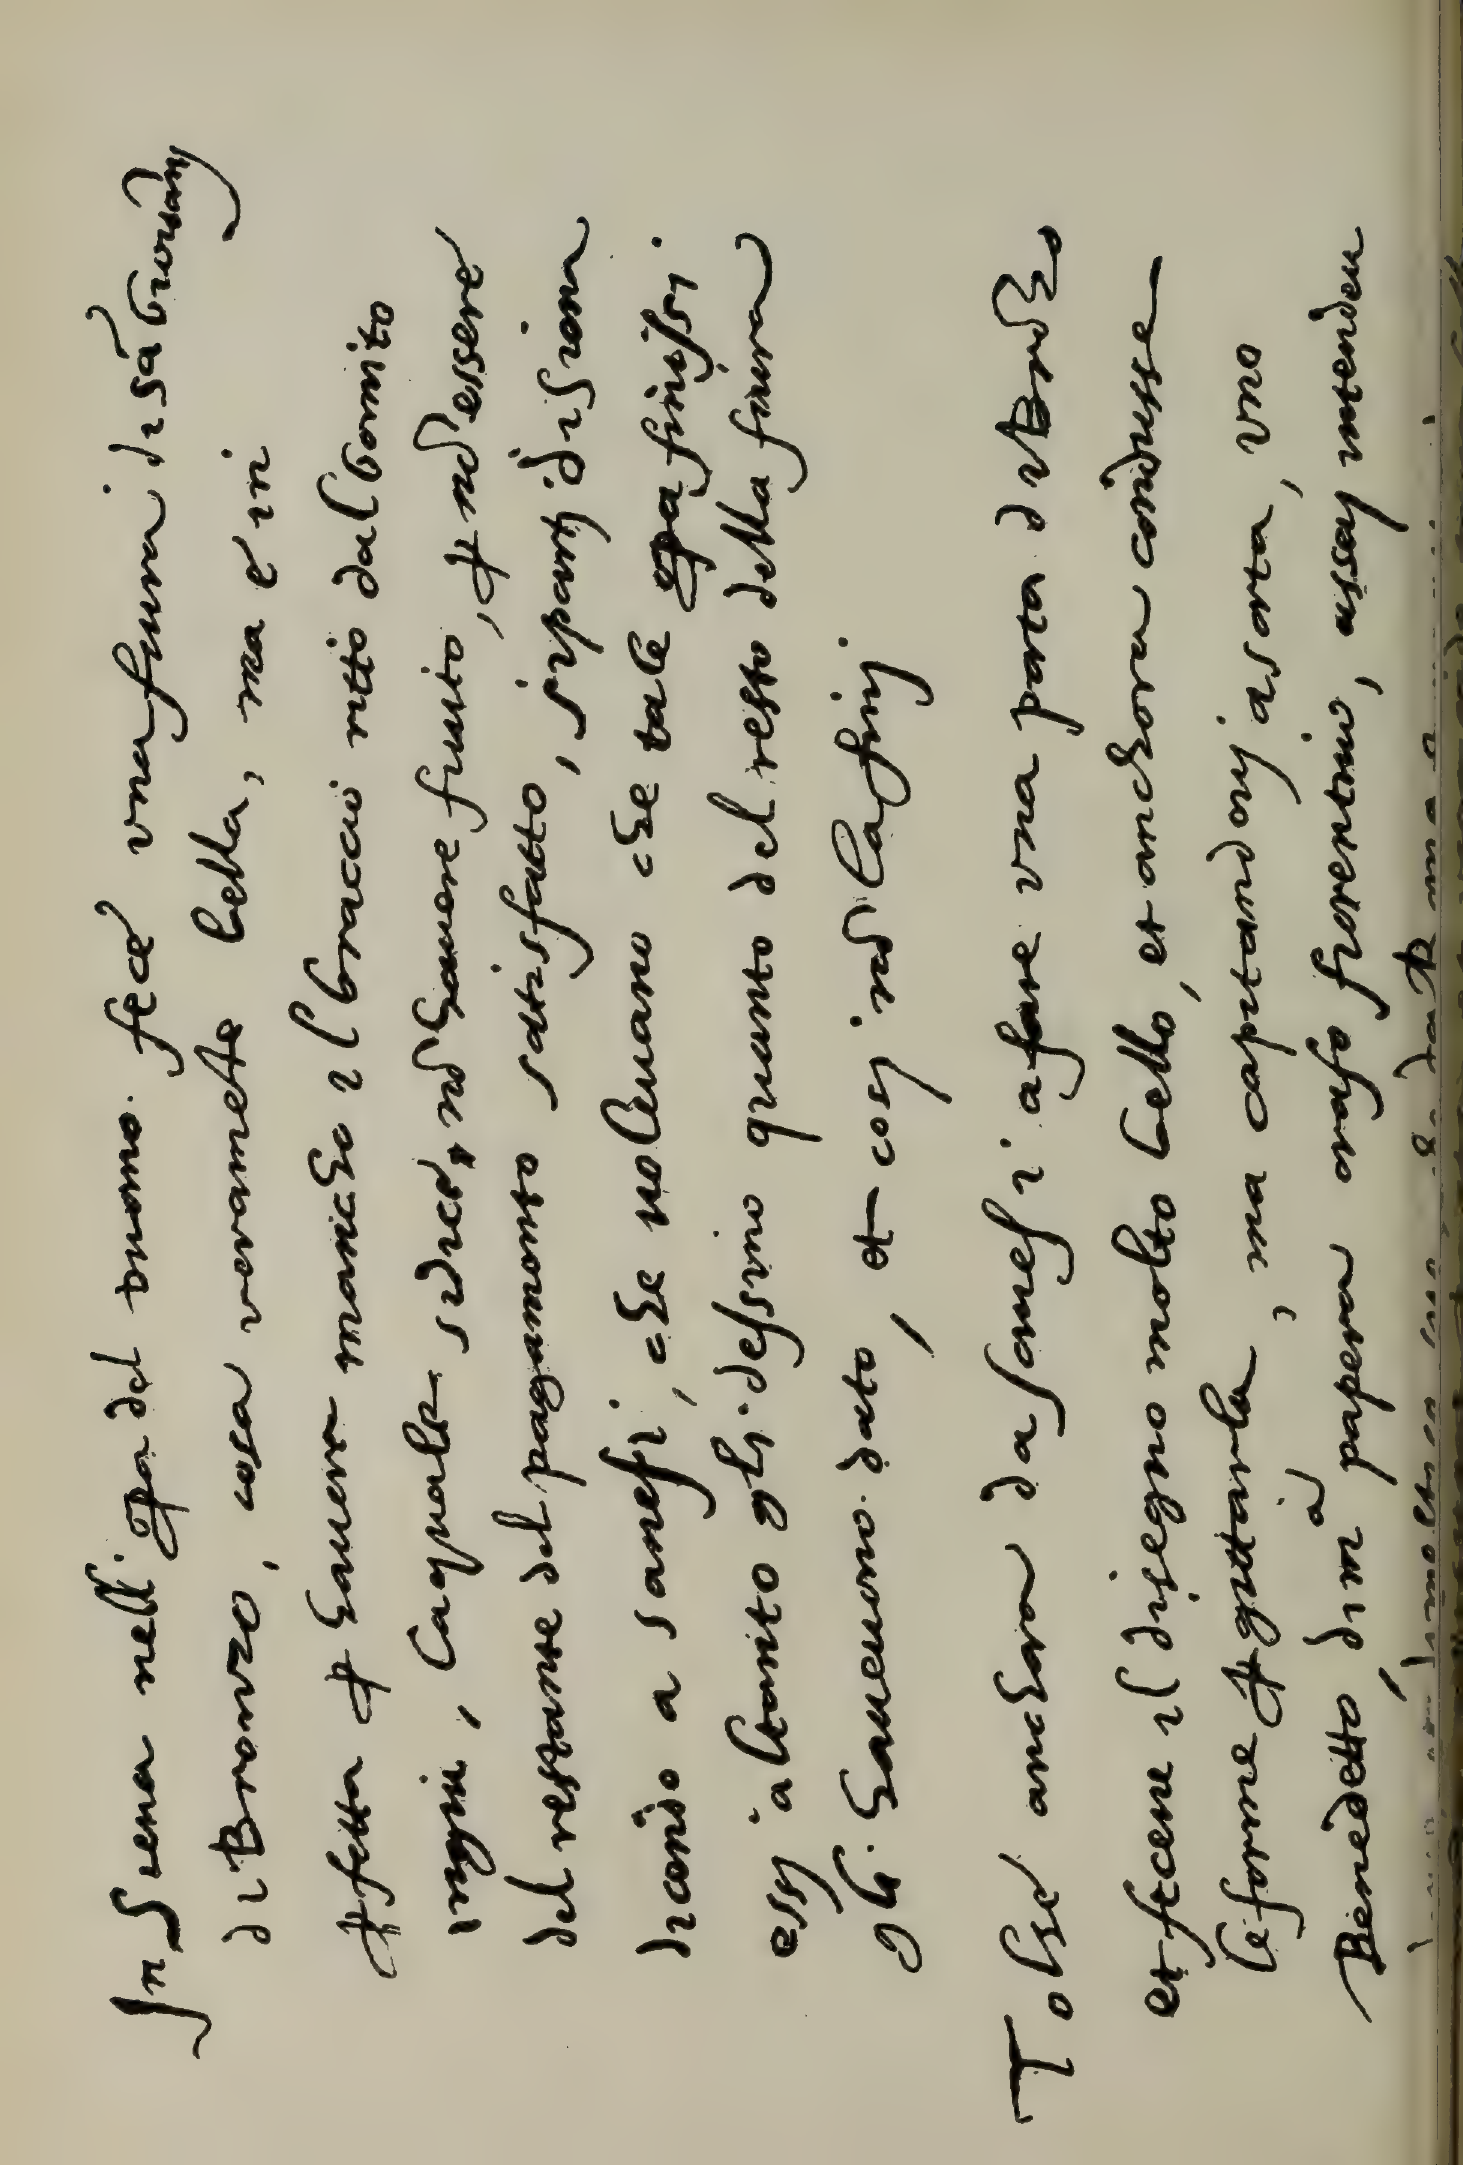 In Siena nell' opa del Duomo. fece vna figura di sā Giouāny
di Bronzo, cosa veramēte bella, ma e in
ꝑfetta ꝑ hauere mancho il braccio ritto dal Gomito
ingiu, la quale si dice, nō hauere finito, ꝑ nō essere
del restante del pagamento satisfatto, si partì di Siena
dicendo a sanesi, che uoleuano che tale opa finissi.
essi altanto gli dessino quanto del resto della figura
gli haueuono dato, et cosi nō la finj.
Tolse anchora da Sanesi a fare vna porta di Brōzo
et fecene il disegno molto bello, et anchora cōdusse
le forme ꝑ gittarla, ma capitandovj a sorta, vno
Benedetto di mª papera orafo fiorentino, assay intenden